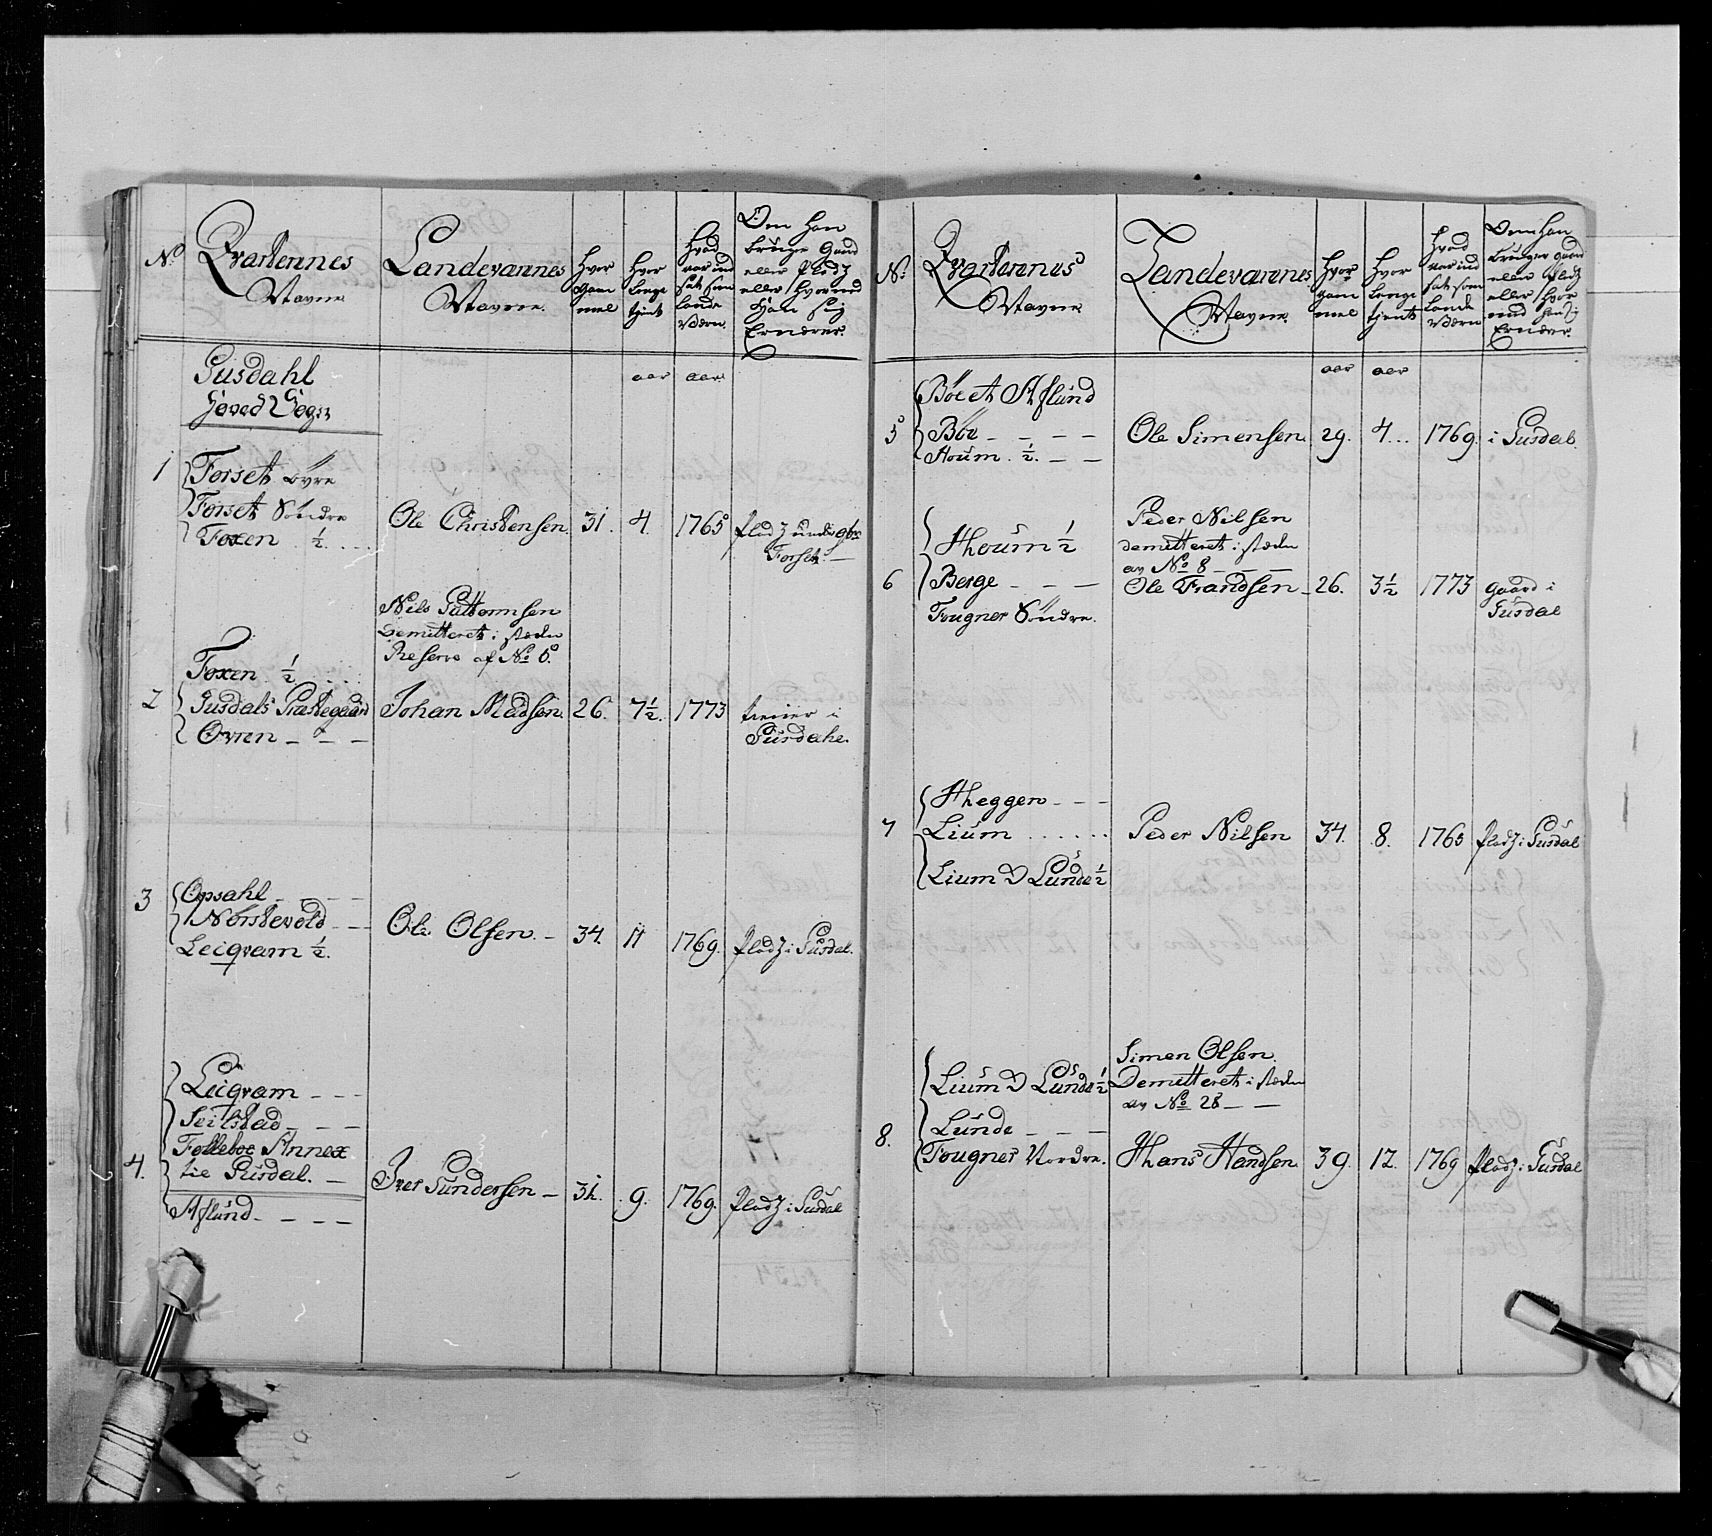 No
Qvarterernes
Navne
Landeværnes
Navne.
Hvor
gam
mel
Hvor
lenge
tjent
Hvad
aar ind
sat som
Lande
Værn
Om Han
bruger Gaard
eller Pladz
eller Hvormed
Han sig
Ernærer.
Gusdahl
Hoved Sogn
aar aar
1
Forset øvre
Forset Søndre
Foxen ½
Ole Christensen. 31. 4. 1765 Pladz under øvre
Forset.
Nils Guttormsen
Demitteret i stæden
Reserve af No 5.
2
Foxen ½
Gusdals Præstegaard Johan Madsen. 26. 7½. 1773
Øvren
i
Gusdahl.
3
Opsahl
Nørstevold
Leiqvam ½.
Ole Olsen. 34. 11 1769. Pladz i Gusdal.
4.
Leiqvam
Seilstad
Folleboe Annex
tie Gusdal.
Aslund
Iver Gundersen 31. 9. 1769. Pladz i Gusdal
No
Qvarterernes
Navne
Landeværnes
Navne.
Hvor
gam
mel
Hvor
lenge
tjent
Hvad
aar ind
sat som
Lande
Værn
Om Han
bruger Gaard
eller Pladz
eller Hvor
med Han sig
Ernærer.
aar aar
5
Bøe et Aslund
Bøe
Houm ½.
Ole Simensen. 29. 4. 1769. i Gusdal.
6
Houm ½
Berge
Fougner Søndre.
Peder Nilsen
demitteret i stæden
av No 8
Ole Frandsen 26. 3½ 1773 gaard i
Gusdal
7
Heggen
Lium
Lium D Lunde ½
Peder Nilsen 34. 8. 1765 Pladz i Gusdal
8.
Lium D Lunde ½
Lunde
Fougner Nordre.
Simen Olsen.
Demitteret i stæden
av No 28
Hans Handsen 39. 12. 1769 Pladz i Gusdal